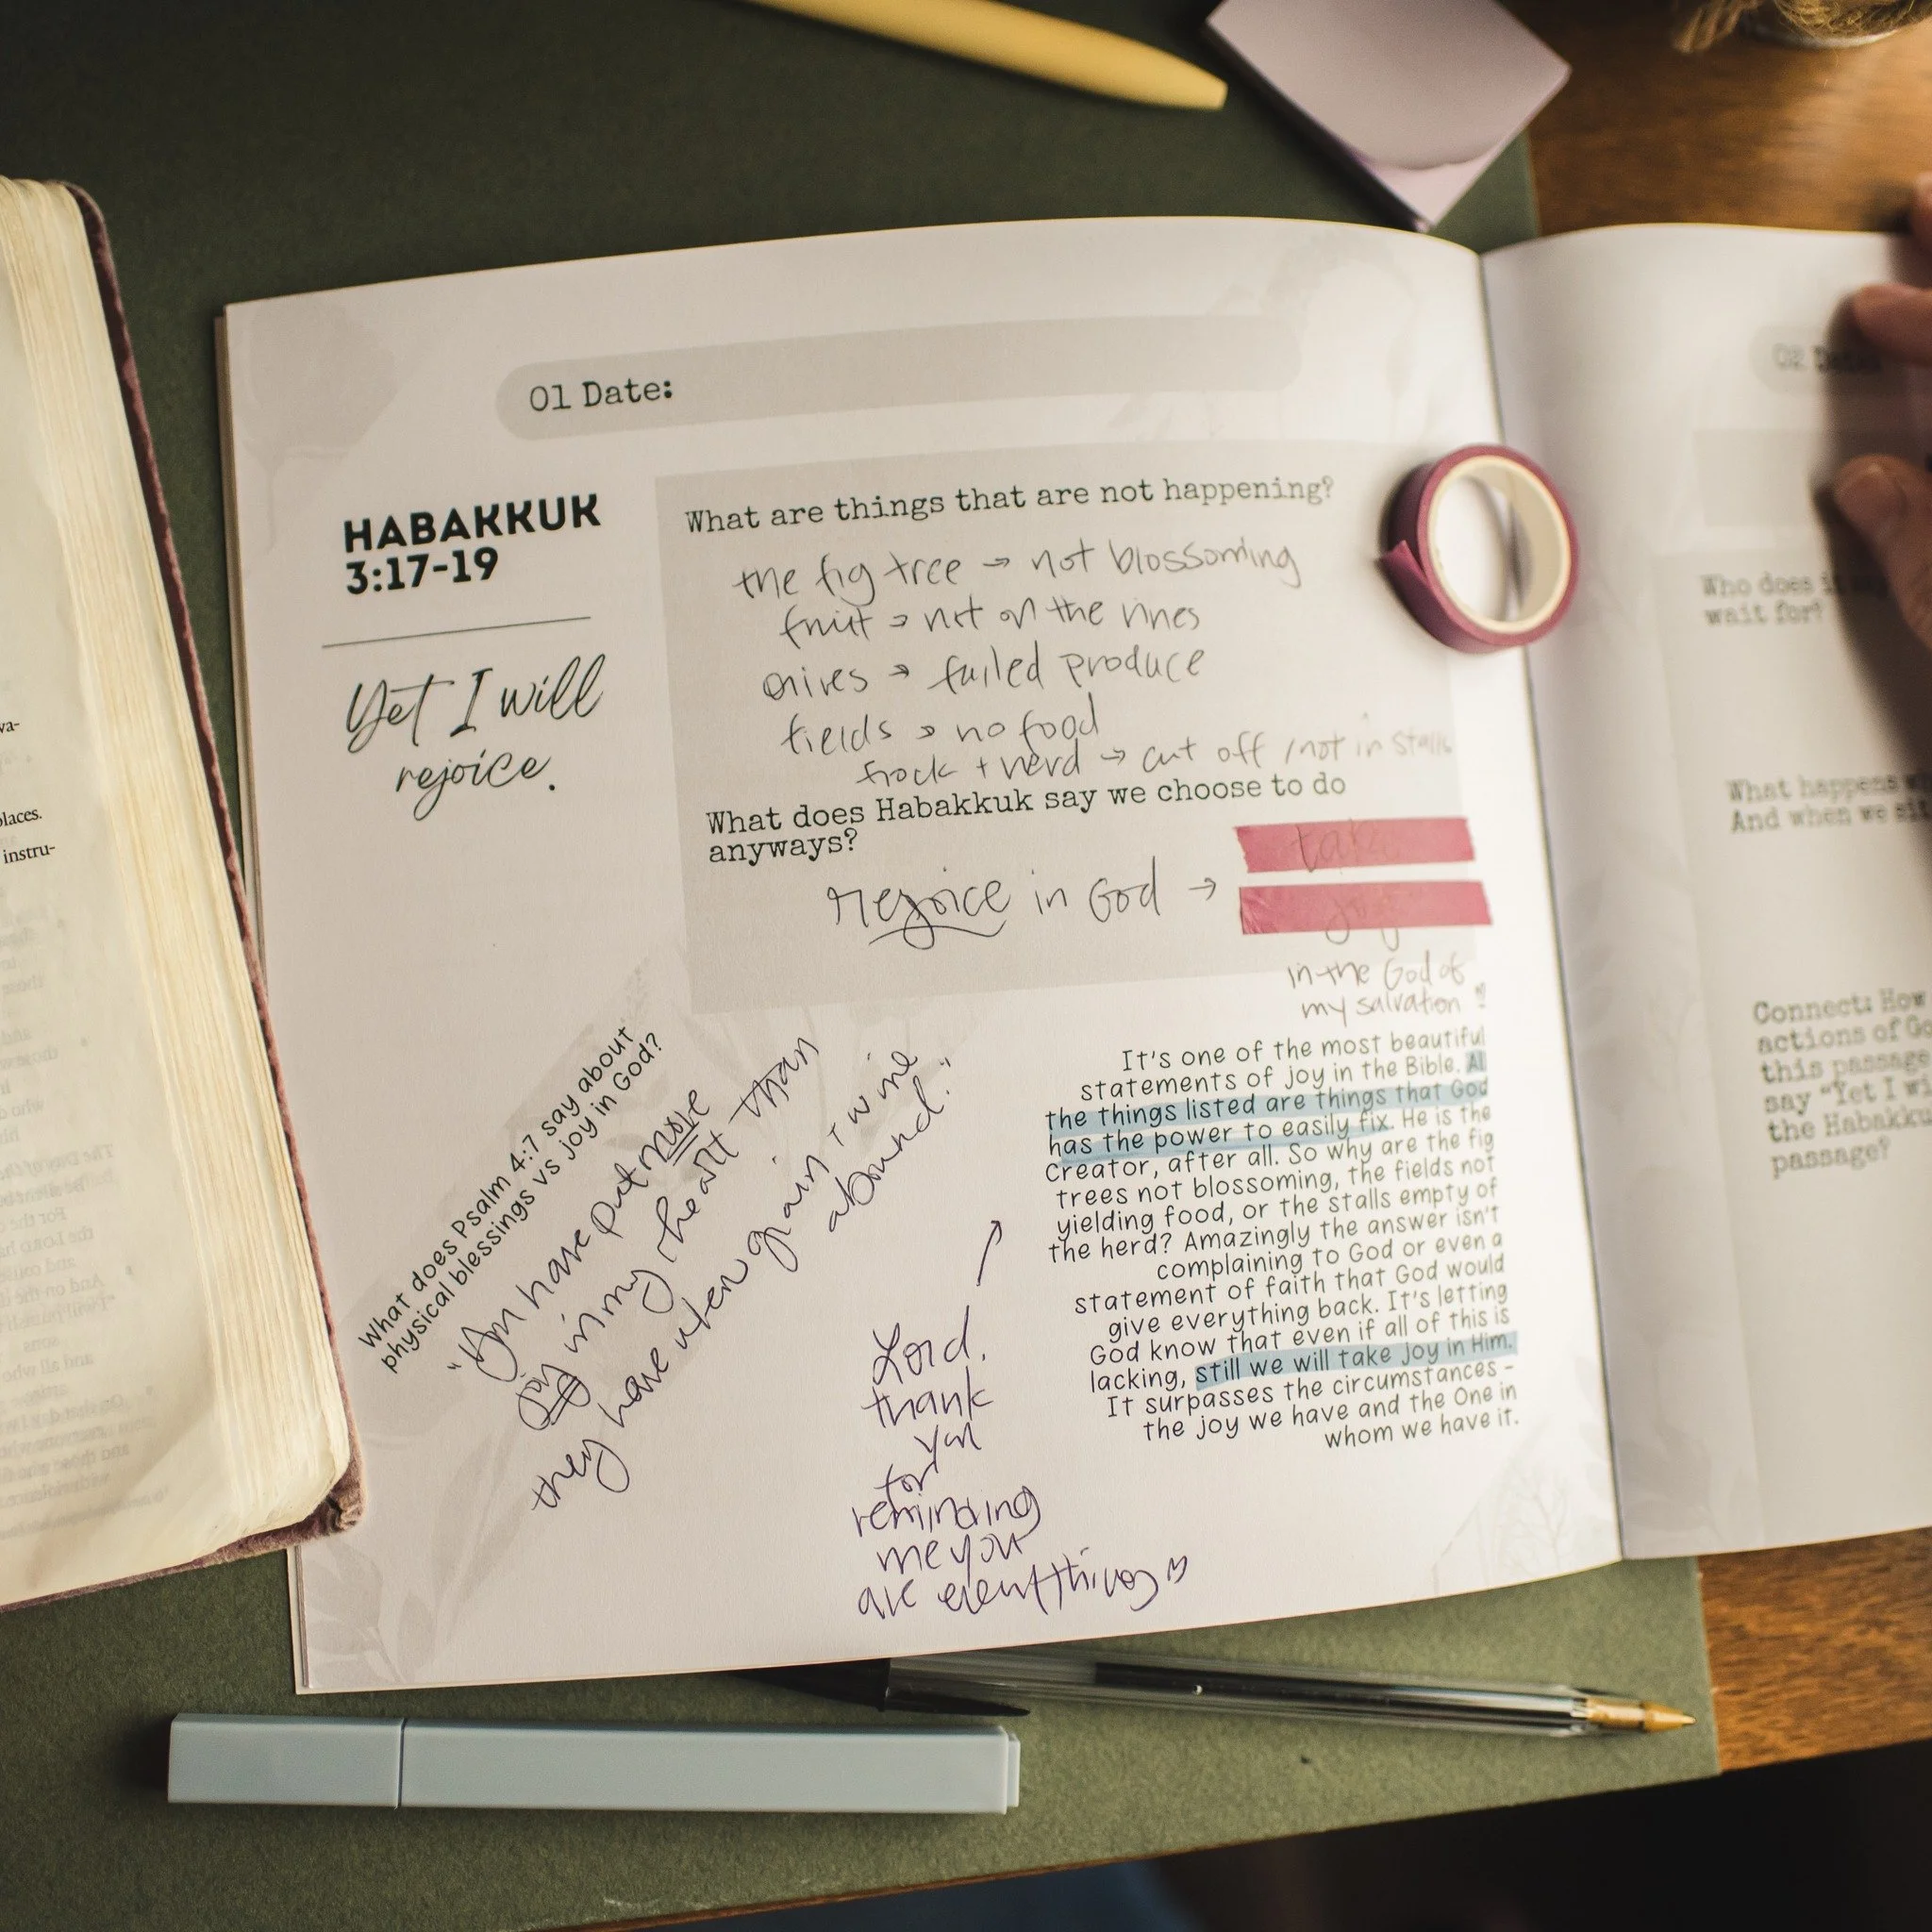 va-
places.
instru-
01 Date:
HABAKKUK
3:17-19
Yet I will
rejoice.
What are things that are not happening?
the fig tree → not blossoming
fruit → not on the vines
olives → failed produce
fields → no food
flock + herd → cut off / not in stalls
What does Habakkuk say we choose to do
anyways?
rejoice in God →
take
joy
in the God of
my salvation
What does Psalm 4:7 say about
physical blessings vs joy in God?
"You have put more
joy in my heart than
they have when grain + wine
abound."
Lord,
thank
you
for
reminding
me you
are everything
It's one of the most beautiful
statements of joy in the Bible. All
the things listed are things that God
has the power to easily fix. He is the
Creator, after all. So why are the fig
trees not blossoming, the fields not
yielding food, or the stalls empty of
the herd? Amazingly the answer isn't
complaining to God or even a
statement of faith that God would
give everything back. It's letting
God know that even if all of this is
lacking, still we will take joy in Him.
It surpasses the circumstances -
the joy we have and the One in
whom we have it.
02 Date:
Who does
wait for?
What happens
And when we
Connect: How
actions of
this passage
say "Yet I
the
passage?